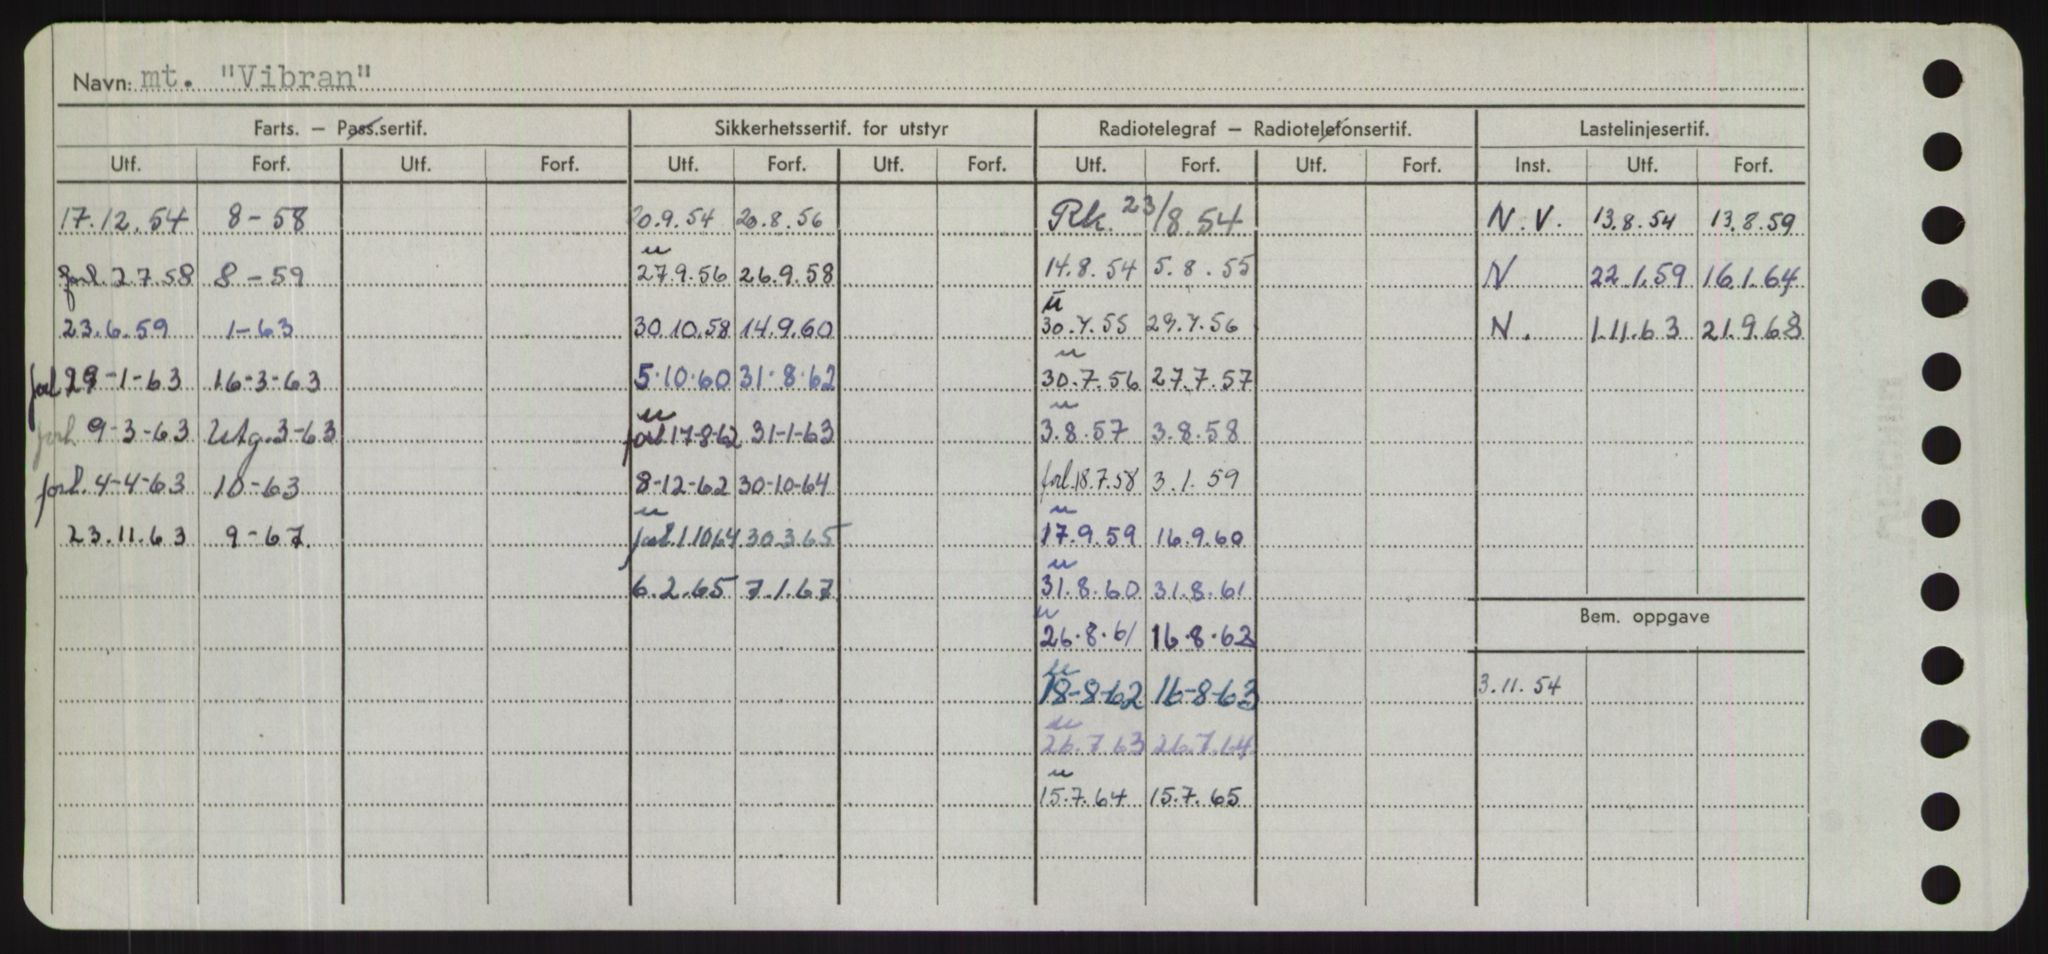 Navn: mt. "Vibran"
Farts. – Pass.sertif. Sikkerhetssertif. for utstyr Radiotelegraf – Radiotelefonsertif. Lastelinjesertif.
Utf. Forf. Utf. Forf. Utf. Forf. Utf. Forf. Utf. Forf. Utf. Forf. Inst. Utf. Forf.
17.12.54 8-58 20.9.54 20.8.56 Rk. 23/8.54 N.V. 13.8.54 13.8.59
forl. 2.7.58 8-59 u 27.9.56 26.9.58 14.8.54 5.8.55 N 22.1.59 16.1.64
23.6.59 1-63 30.10.58 14.9.60 u 30.7.55 29.7.56 N. 1.11.63 21.9.68
forl 29-1-63 16-3-63 5.10.60 31.8.62 u 30.7.56 27.7.57
forl. 9-3-63 Utg.3-63 u forl.17-8-62 31-1-63 u 3.8.57 3.8.58
forl. 4-4-63 10-63 8-12-62 30-10-64 forl.18.7.58 3.1.59
23.11.63 9-67. u forl.1.10.64 30.3.65 u 17.9.59 16.9.60
6.2.65 7.1.67 u 31.8.60 31.8.61
Bem. oppgave
u 26.8.61 16.8.62
u 18-8-62 16-8-63 3.11.54
u 26.7.63 26.7.64
u 15.7.64 15.7.65